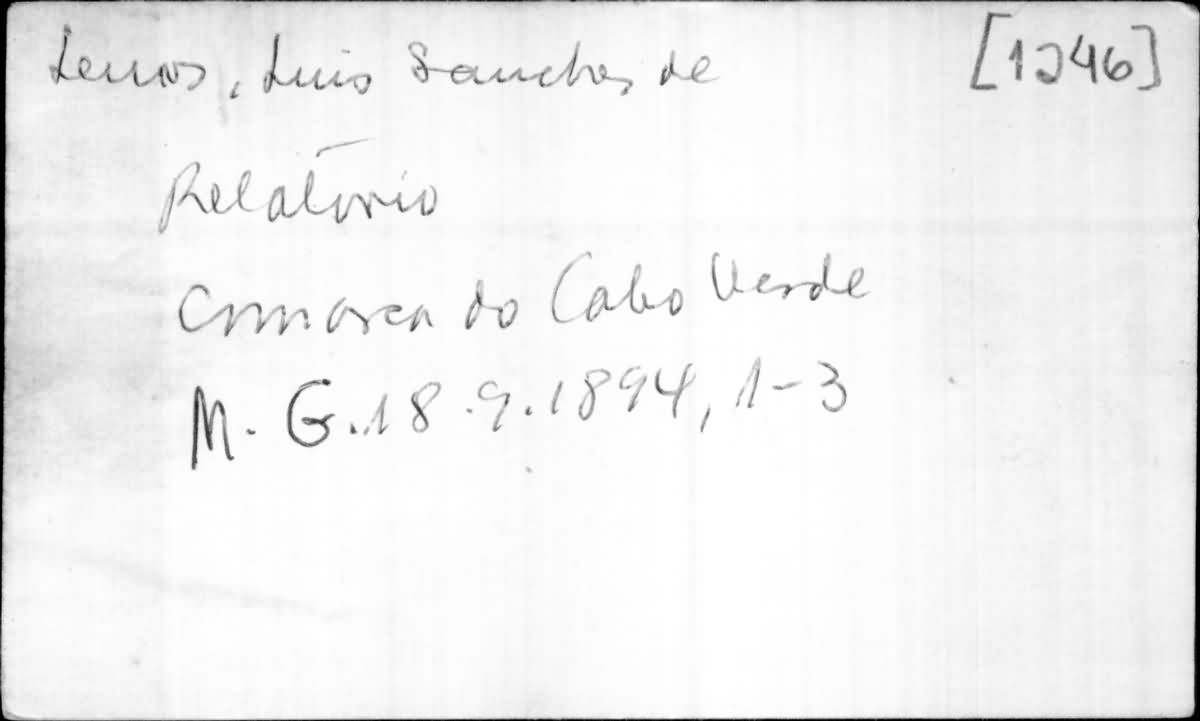 Lemos, Luis Sanches de [1246]
Relatório
Comarca do Cabo Verde
M. G. 18.9.1894, 1-3